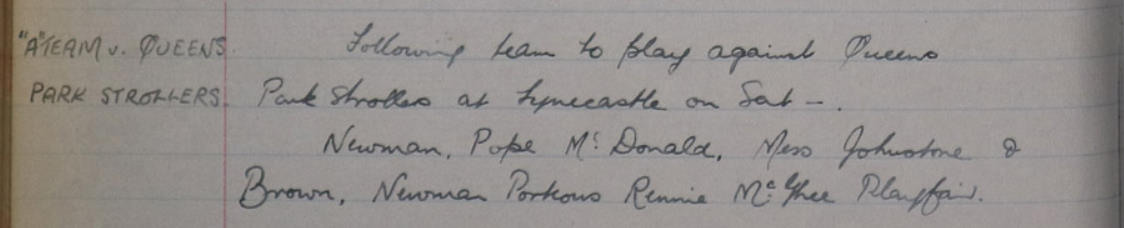 "A" TEAM v. QUEENS
PARK STROLLERS.
Following team to play against Queens
Park Strollers at Tynecastle on Sat -.
Newman, Pope McDonald, Mess Johnstone &
Brown, Newman Porteous Rennie McGhee Playfair.